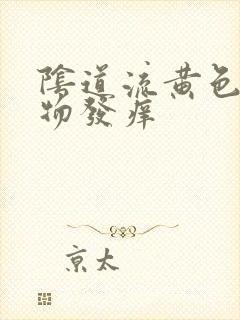 陰道流黄色
物發痒
京太